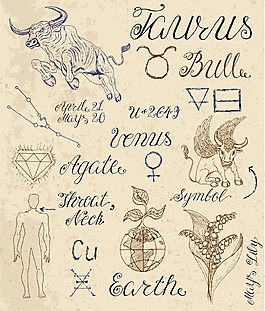 Taurus
Bull
April 21
May 20
U+2649
Venus
Agate
Throat,
Neck
Symbol
Cu
Earth
May's Lily